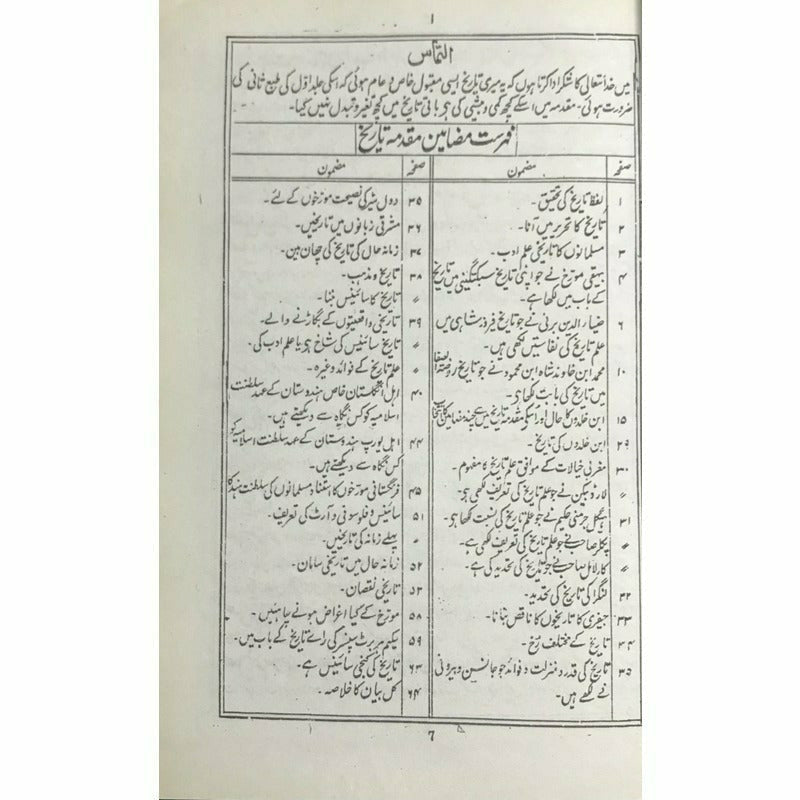 ۱
التماس
میں خدا تعالیٰ کا شکر ادا کرتا ہوں کہ یہ میری تاریخ ایسی مقبول خاص و عام ہوئی کہ اسکی جلد اوّل کی طبع ثانی کی
ضرورت ہوئی۔ مقدمہ میں اسکے کچھ کمی و بیشی کی ہی باقی تاریخ میں کچھ تغیر و تبدل نہیں کیا۔
فہرست مضامین مقدمہ تاریخ
صفحہ مضمون
۱ لفظ تاریخ کی تحقیق۔
۲ تاریخ کا تحریر میں آنا۔
۳ مسلمانوں کا تاریخی علم ادب۔
۴ بیہقی مورخ نے جو اپنی تاریخ سبکتگینی میں تاریخ
کے باب میں لکھا ہے۔
۶ ضیاء الدین برنی نے جو تاریخ فیروز شاہی میں
علم تاریخ کی نفاستیں لکھی ہیں۔
۱۰ محمد ابن خاوند شاہ ابن محمود نے جو تاریخ روضۃ الصفا
میں تاریخ کی بابت لکھا ہی۔
۱۵ ابن خلدوں کا حال اور اسکے مقدمہ تاریخ میں سے چند مضامین کا انتخاب
۲۹ ابن خلدوں کی تاریخ۔
۳۰ مغربی خیالات کے موافق علم تاریخ کا مفہوم۔
〃 لارڈ بیکن نے جو علم تاریخ کی تعریف لکھی ہی۔
۳۱ ہیگل جرمنی حکیم نے جو علم تاریخ کی نسبت لکھا ہی۔
〃 بکل صاحب نے جو علم تاریخ کی تعریف لکھی ہے۔
〃 کارلائل صاحب نے جو تاریخ کی تحدید کی ہے۔
۳۲ کنگز کی تاریخ کی تحدید۔
۳۳ جیفری کا تاریخوں کا ناقص بتانا۔
۳۴ تاریخ کے مختلف رخ۔
۳۵ تاریخ کی قدر و منزلت و فوائد جو جانسین و ہیرونی
نے لکھے ہیں۔
صفحہ مضمون
۳۵ دول شیر کی نصیحت مورخوں کے لئے۔
۳۶ مشرقی زبانوں میں تاریخیں۔
۳۷ زمانہ حال کی تاریخ کی چھان بین۔
۳۸ تاریخ و مذہب۔
〃 تاریخ کا سائینس بننا۔
۳۹ تاریخی واقعیتوں کے بگاڑنے والے۔
〃 تاریخ سائینس کی شاخ ہی یا علم ادب کی۔
〃 علم تاریخ کے فوائد وغیرہ۔
۴۰ اہل انگلستان خاص ہندوستان کے عہد سلطنت
اسلامیہ کو کس نگاہ سے دیکھتے ہیں۔
۴۴ اہل یورپ ہندوستان کے عہد سلطنت اسلامیہ کو
کس نگاہ سے دیکھتے ہیں۔
۴۵ فرنگستانی مورخوں کا استناد مسلمانوں کی سلطنت ہند کا
۵۱ سائینس و فلوسوفی و آرٹ کی تعریف۔
〃 پہلے زمانہ کی تاریخیں۔
۵۲ زمانہ حال میں تاریخی سامان۔
۵۲ تاریخی نقصان۔
۵۸ مورخ کے کیا اغراض ہونے چاہئیں۔
۵۹ حکیم ہربرٹ سپنسر کی رائے تاریخ کے باب میں۔
۶۳ تاریخ کی کنجی سائینس ہے۔
۶۴ کل بیان کا خلاصہ۔
7